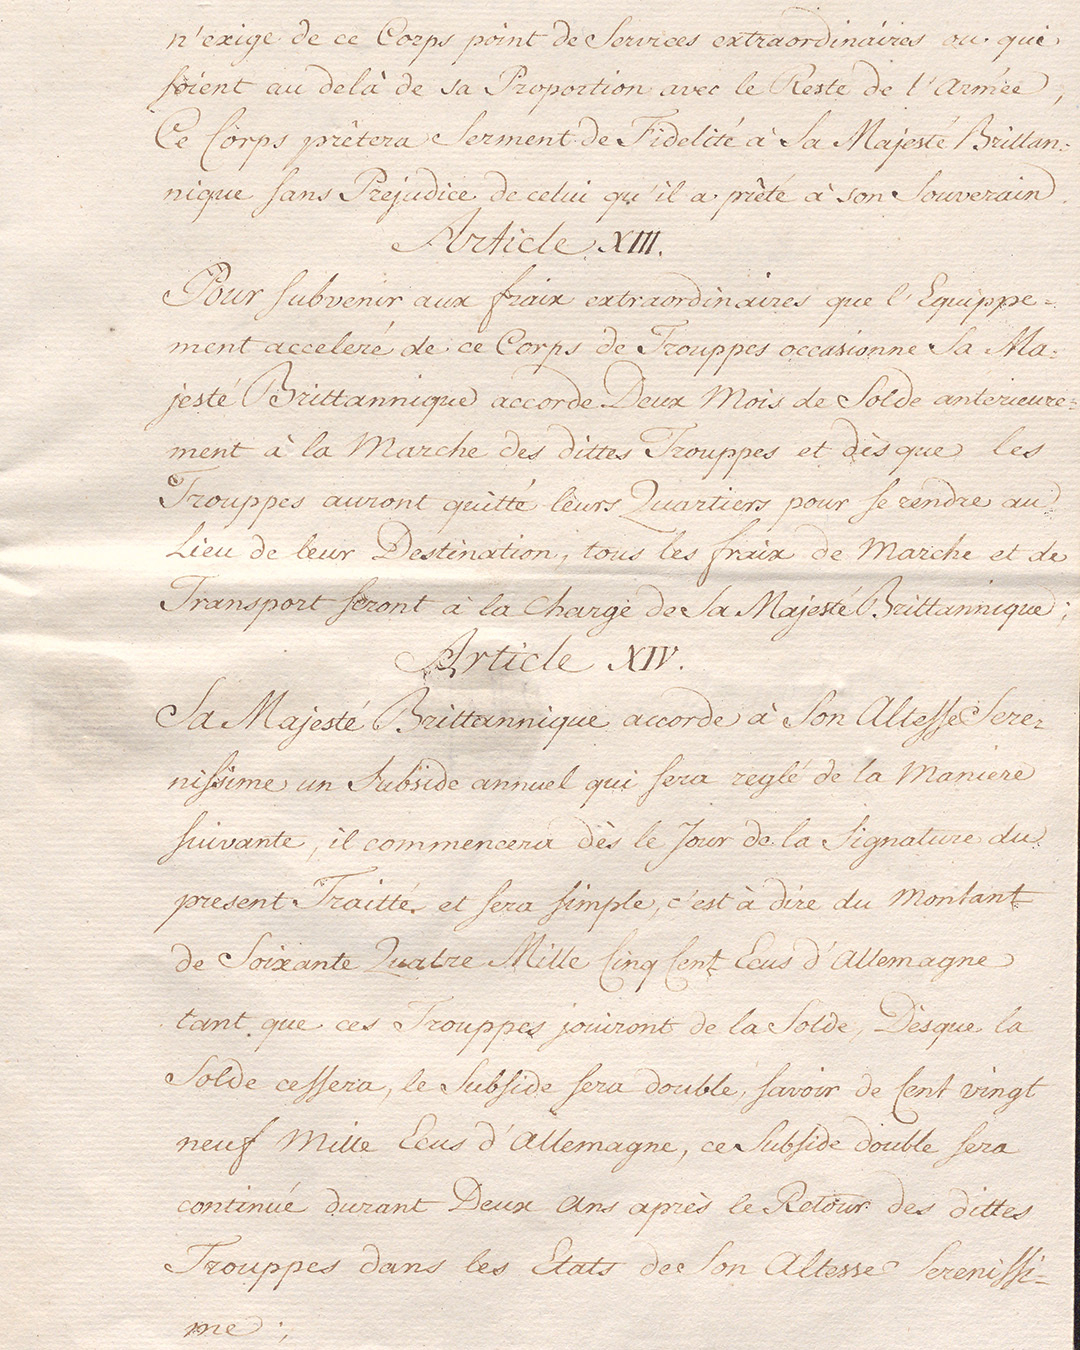 n'exige de ce Corps point de Services extraordinaires ou qui
soient au delà de sa Proportion avec le Reste de l'Armée,
Ce Corps prêtera Serment de Fidelité à Sa Majesté Brittan=
nique sans Prejudice de celui qu'il a prêté à son Souverain.
Article XIII.
Pour subvenir aux fraix extraordinaires que l'Equippe=
ment acceleré de ce Corps de Trouppes occasionne Sa Ma=
jesté Brittannique accorde Deux Mois de Solde anterieure=
ment à la Marche des dittes Trouppes et dès que les
Trouppes auront quitté leurs Quartiers pour se rendre au
Lieu de leur Destination, tous les fraix de Marche et de
Transport seront à la Charge de Sa Majesté Brittannique;
Article XIV.
Sa Majesté Brittannique accorde à Son Altesse Sere=
nissime un Subside annuel qui sera reglé de la Maniere
suivante, il commencera dès le Jour de la Signature du
present Traitté et sera simple, c'est à dire du Montant
de Soixante Quatre Mille Cinq Cent Ecus d'Allemagne
tant que ces Trouppes jouiront de la Solde, Dèsque la
Solde cessera, le Subside sera double, savoir de Cent vingt
neuf Mille Ecus d'Allemagne, ce Subside double sera
continué durant Deux Ans après le Retour des dittes
Trouppes dans les Etats de Son Altesse Serenissi=
me;